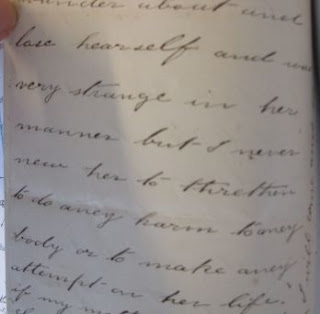 wander about and
lose hearself and was
very strange in her
manner but I never
new her to threthen
to do aney harm to aney
body or to make aney
attempt on her life.
if my